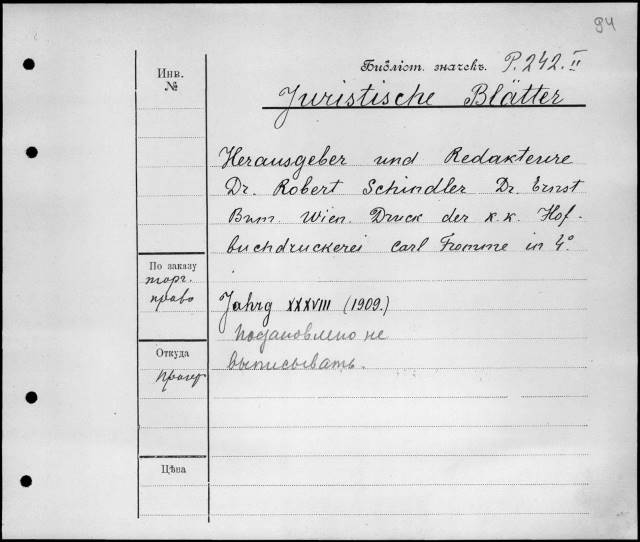 94
Библіот. значекъ. P.242.II
Инв.
№
Juristische Blätter
Herausgeber und Redakteure
Dr. Robert Schindler Dr. Ernst
Bum. Wien. Druck der K.K. Hof-
buchdruckerei Carl Fromme in 4°
По заказу
торг.
право
Jahrg XXXVIII (1909.)
Постановлено не
выписывать.
Откуда
Цѣна